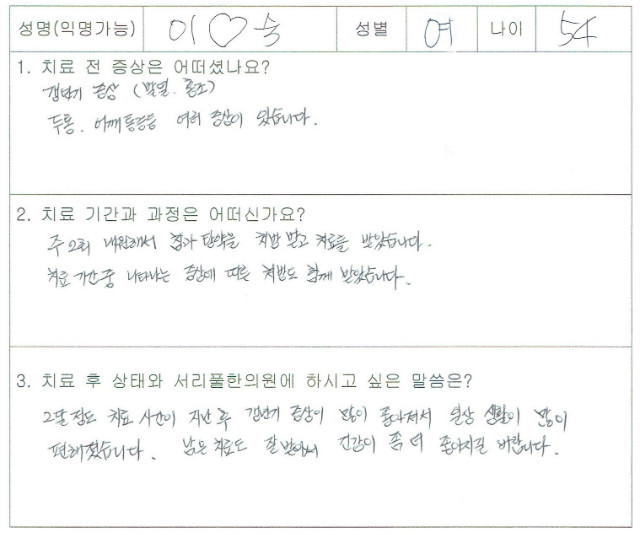 성명(익명가능) 이♡숙 성별 여 나이 54
1. 치료 전 증상은 어떠셨나요?
갱년기 증상 (발열. 홍조)
두통. 어깨통증등 여러 증상이 있었습니다.
2. 치료 기간과 과정은 어떠신가요?
주 2회 내원해서 침과 탕약을 처방 받고 치료를 받았습니다.
치료 기간중 나타나는 증상에 따른 처방도 함께 받았습니다.
3. 치료 후 상태와 서리풀한의원에 하시고 싶은 말씀은?
2달 정도 치료 시간이 지난 후 갱년기 증상이 많이 좋아져서 일상 생활이 많이
편해졌습니다. 남은 치료도 잘 받아서 건강이 좀 더 좋아지길 바랍니다.